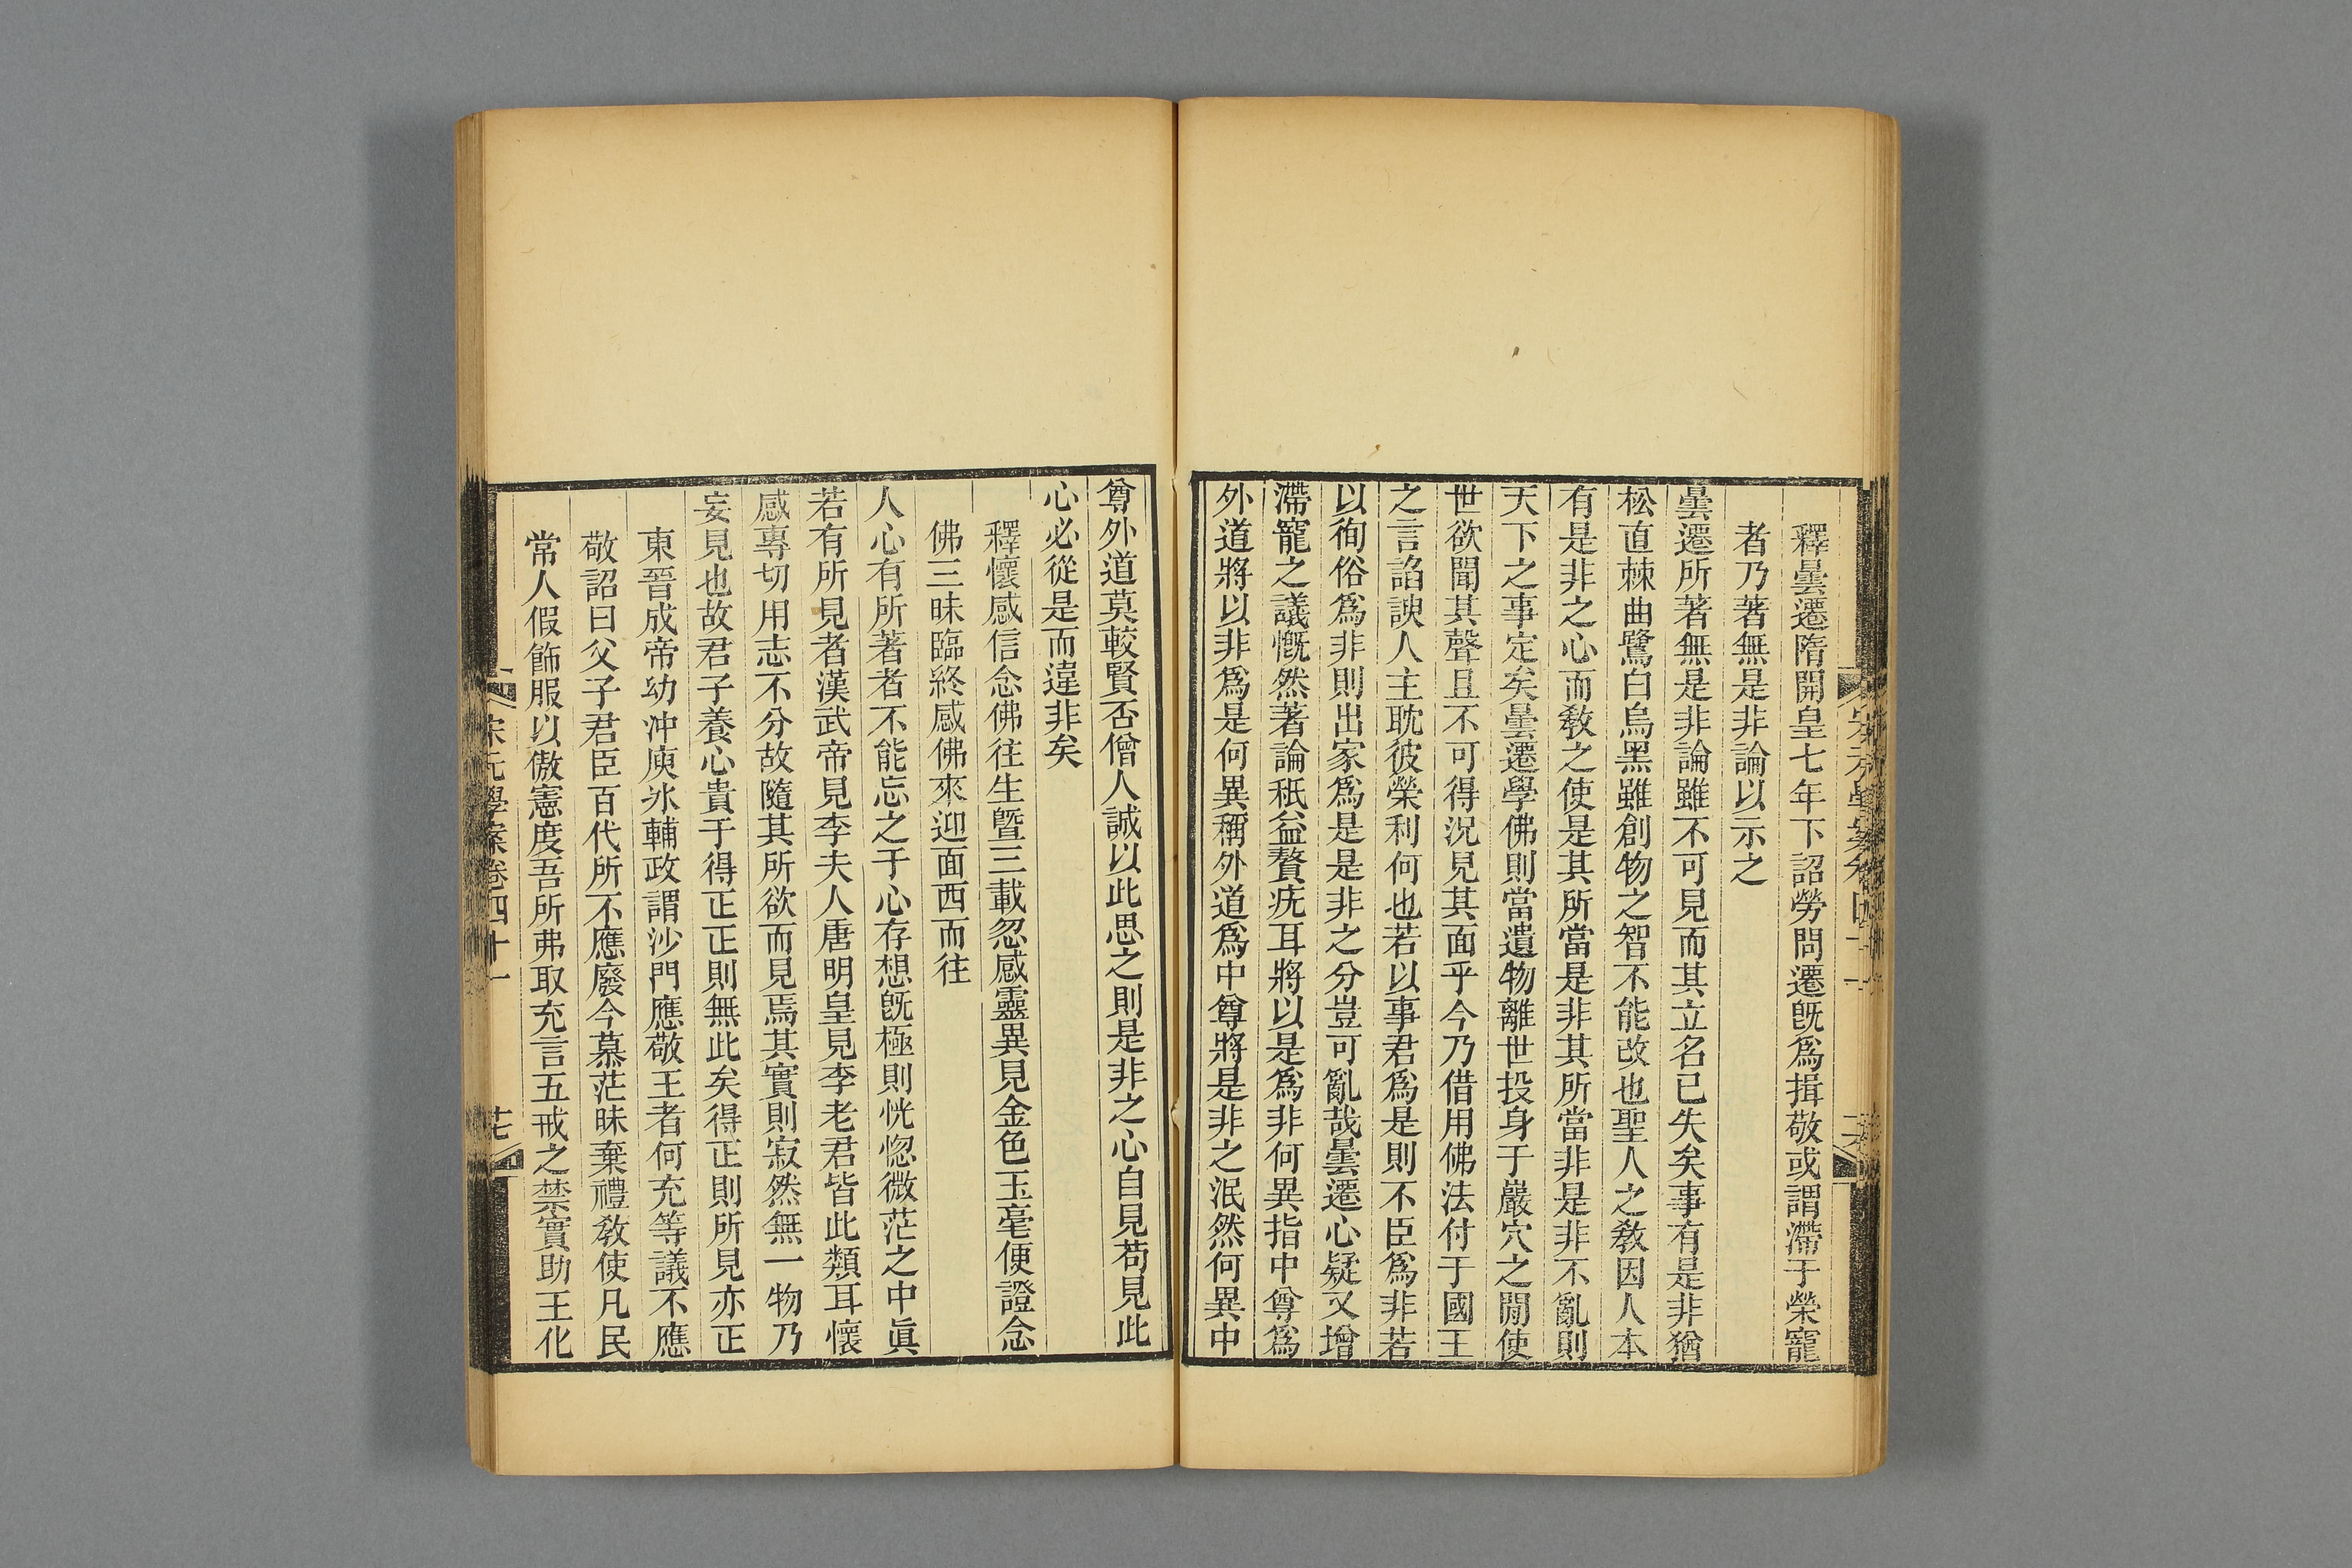 釋曇遷隋開皇七年下詔勞問遷旣爲揖敬或謂滯于榮寵
者乃著無是非論以示之
曇遷所著無是非論雖不可見而其立名已失矣事有是非猶
松直棘曲鷺白烏黑雖創物之智不能改也聖人之敎因人本
有是非之心而敎之使是其所當是非其所當非是非不亂則
天下之事定矣曇遷學佛則當遺物離世投身于巖穴之閒使
世欲聞其聲且不可得況見其面乎今乃借用佛法付于國王
之言諂諛人主耽彼榮利何也若以事君爲是則不臣爲非若
以徇俗爲非則出家爲是是非之分豈可亂哉曇遷心疑又增
滯寵之議慨然著論秖益贅疣耳將以是爲非何異指中尊爲
外道將以非爲是何異稱外道爲中尊將是非之泯然何異中
尊外道莫較賢否僧人誠以此思之則是非之心自見苟見此
心必從是而違非矣
釋懷感信念佛往生曁三載忽感靈異見金色玉毫便證念
佛三昧臨終感佛來迎面西而往
人心有所著者不能忘之于心存想旣極則恍惚微茫之中眞
若有所見者漢武帝見李夫人唐明皇見李老君皆此類耳懷
感專切用志不分故隨其所欲而見焉其實則寂然無一物乃
妄見也故君子養心貴于得正正則無此矣得正則所見亦正
東晉成帝幼沖庾冰輔政謂沙門應敬王者何充等議不應
敬詔曰父子君臣百代所不應廢今慕茫昧棄禮敎使凡民
常人假飾服以傲憲度吾所弗取充言五戒之禁實助王化
宋元學案卷四十一